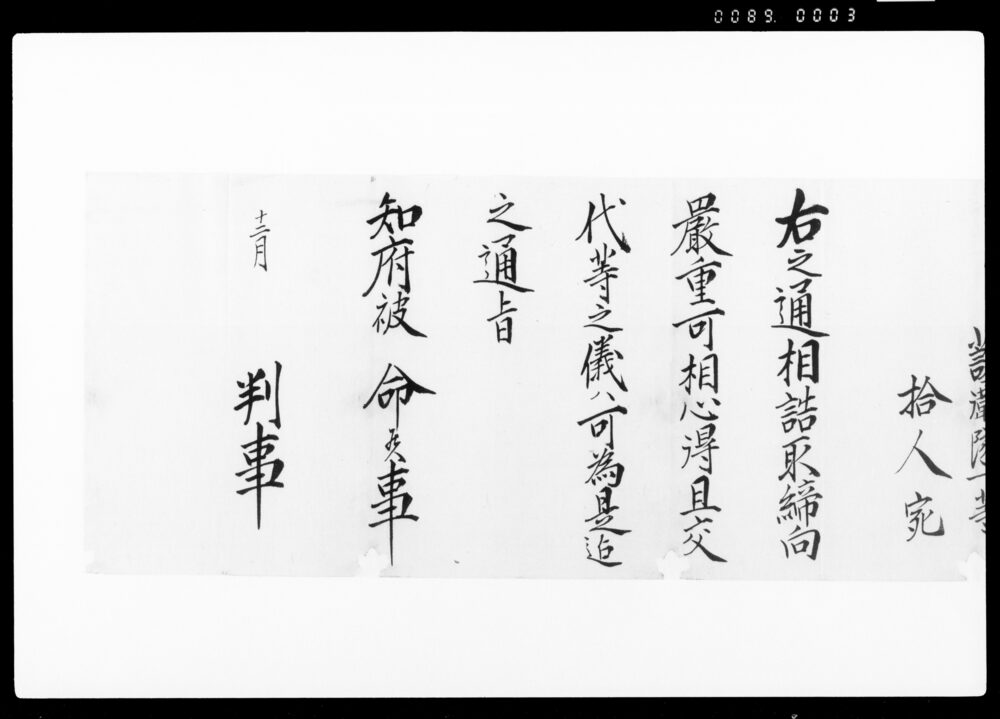 0089. 0003
護衛隊一等
拾人宛
右之通相詰取締向
嚴重可相心得且交
代等之儀ハ可為是迄
之通旨
知府被 命候事
十二月
判事